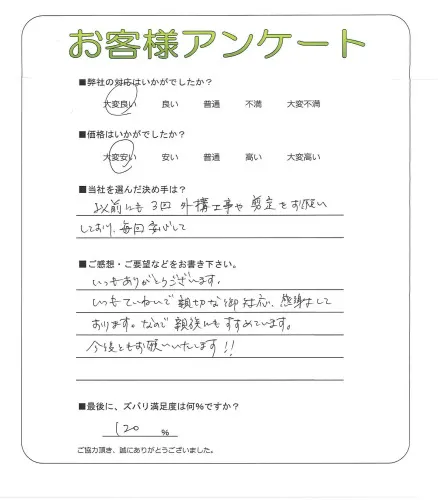 お客様アンケート
■弊社の対応はいかがでしたか？
大変良い　良い　普通　不満　大変不満
■価格はいかがでしたか？
大変安い　安い　普通　高い　大変高い
■当社を選んだ決め手は？
以前にも3回 外構工事や 剪定をお願い
しており、毎回安心して
■ご感想・ご要望などをお書き下さい。
いつもありがとうございます。
いつもていねいで親切な御対応、感謝して
おります。なので親族にもすすめています。
今後ともお願いいたします!!
■最後に、ズバリ満足度は何％ですか？
120 ％
ご協力頂き、誠にありがとうございました。